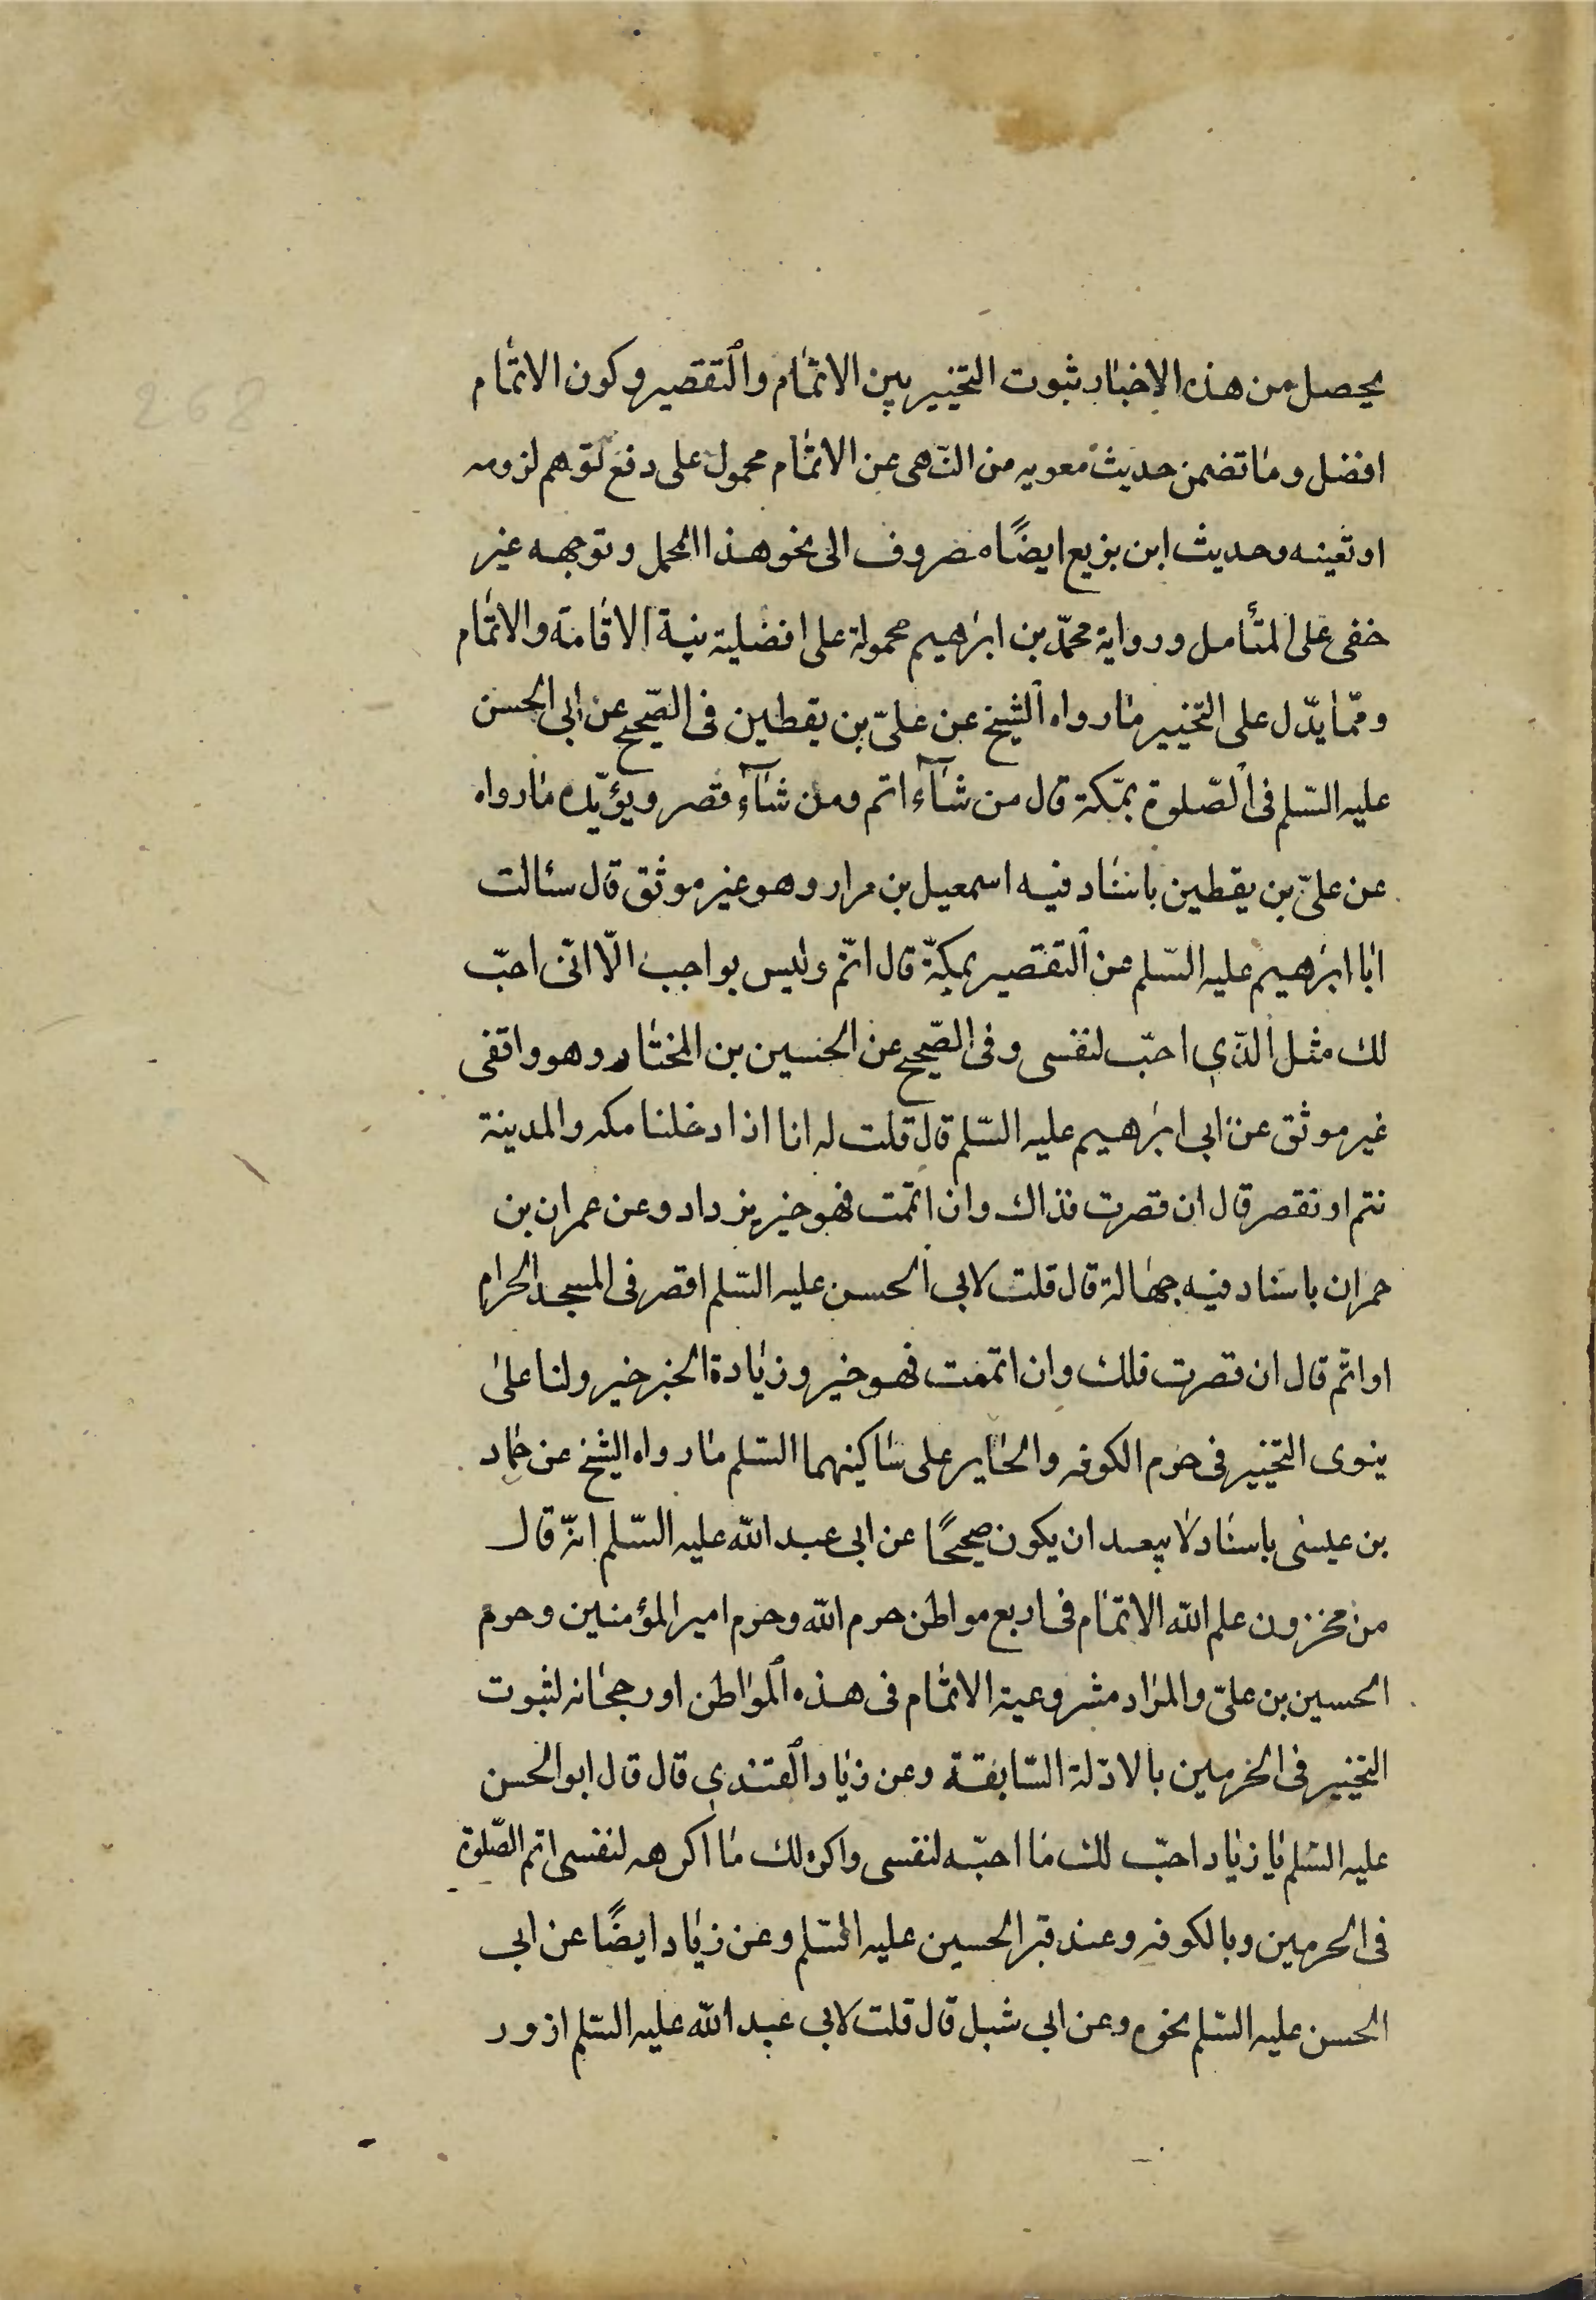 يحصل من هذه الاخبار ثبوت التخيير بين الاتمام والتقصير وكون الاتمام
افضل وما تضمن حديث معويه من النهى عن الاتمام محمول على دفع توهم لزومه
او تعينه وحديث ابن بزيع ايضًا مصروف الى نحو هذا المحمل وتوجهه غير
خفى على المتأمل ورواية محمّد بن ابرهيم محمولة على افضلية نية الاقامة والاتمام
وممّا يدّل على التخيير ما رواه الشيخ عن علىّ بن يقطين فى الصّحيح عن ابى الحسن
عليه السّلم فى الصّلوة بمّكة قال من شآء اتم ومن شآء قصر ويؤيّده ما رواه
عن علىّ بن يقطين باسناد فيه اسمعيل بن مرار وهو غير موثق قال سئالت
ابا ابرهيم عليه السّلم عن التقصير بمكّة قال اتمّ وليس بواجب الّا انّى احبّ
لك مثل الّذي احبّ لنفسى وفى الصّحيح عن الحسين بن المختار وهو واقفى
غير موثق عن ابى ابرهيم عليه السّلم قال قلت له انا اذا دخلنا مكه والمدينة
نتم او نقصر قال ان قصرت فذاك وان اتممت فهو خير يزداد وعن عمران بن
حمران باسناد فيه جهالة قال قلت لابى الحسن عليه السّلم اقصر فى المسجد الحرام
او اتمّ قال ان قصرت فلك وان اتممت فهو خير وزيادة الخير خير ولنا على
ينوى التخيير فى حرم الكوفه والحاير على ساكنيهما السّلم ما رواه الشيخ عن حماد
بن عيسى باسناد لا يبعد ان يكون صحيحًا عن ابى عبد الله عليه السّلم انّه قال
من مخزون علم الله الاتمام فى اربع مواطن حرم الله وحرم امير المؤمنين وحرم
الحسين بن علىّ والمراد مشروعية الاتمام فى هذه المواطن او رجحانه لثبوت
التخيير فى الحرمين بالادّلة السّابقة وعن زياد القندي قال قال ابو الحسن
عليه السّلم يا زياد احبّ لك ما احبّه لنفسى واكره لك ما اكرهه لنفسى اتم الصّلوة
فى الحرمين وبالكوفه وعند قبر الحسين عليه السّلم وعن زياد ايضًا عن ابى
الحسن عليه السّلم نحوه وعن ابى شبل قال قلت لابى عبد الله عليه السّلم ازور